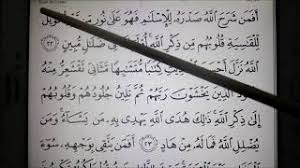 أَفَمَن شَرَحَ ٱللَّهُ صَدْرَهُۥ لِلْإِسْلَٰمِ فَهُوَ عَلَىٰ نُورٍ مِّن
لِّلْقَٰسِيَةِ قُلُوبُهُم مِّن ذِكْرِ ٱللَّهِ فِى ضَلَٰلٍ مُّبِينٍ ٢٢
ٱللَّهُ نَزَّلَ أَحْسَنَ ٱلْحَدِيثِ كِتَٰبًا مُّتَشَٰبِهًا مَّثَانِىَ تَقْشَعِرُّ مِنْهُ
جُلُودُ ٱلَّذِينَ يَخْشَوْنَ رَبَّهُمْ ثُمَّ تَلِينُ جُلُودُهُمْ وَقُلُوبُهُمْ
إِلَىٰ ذِكْرِ ٱللَّهِ ذَٰلِكَ هُدَى ٱللَّهِ يَهْدِى بِهِۦ مَن يَشَآءُ وَمَن
يُضْلِلِ ٱللَّهُ فَمَا لَهُۥ مِنْ هَادٍ ٢٣ أَفَمَن يَتَّقِى بِوَجْهِهِۦ سُوٓءَ